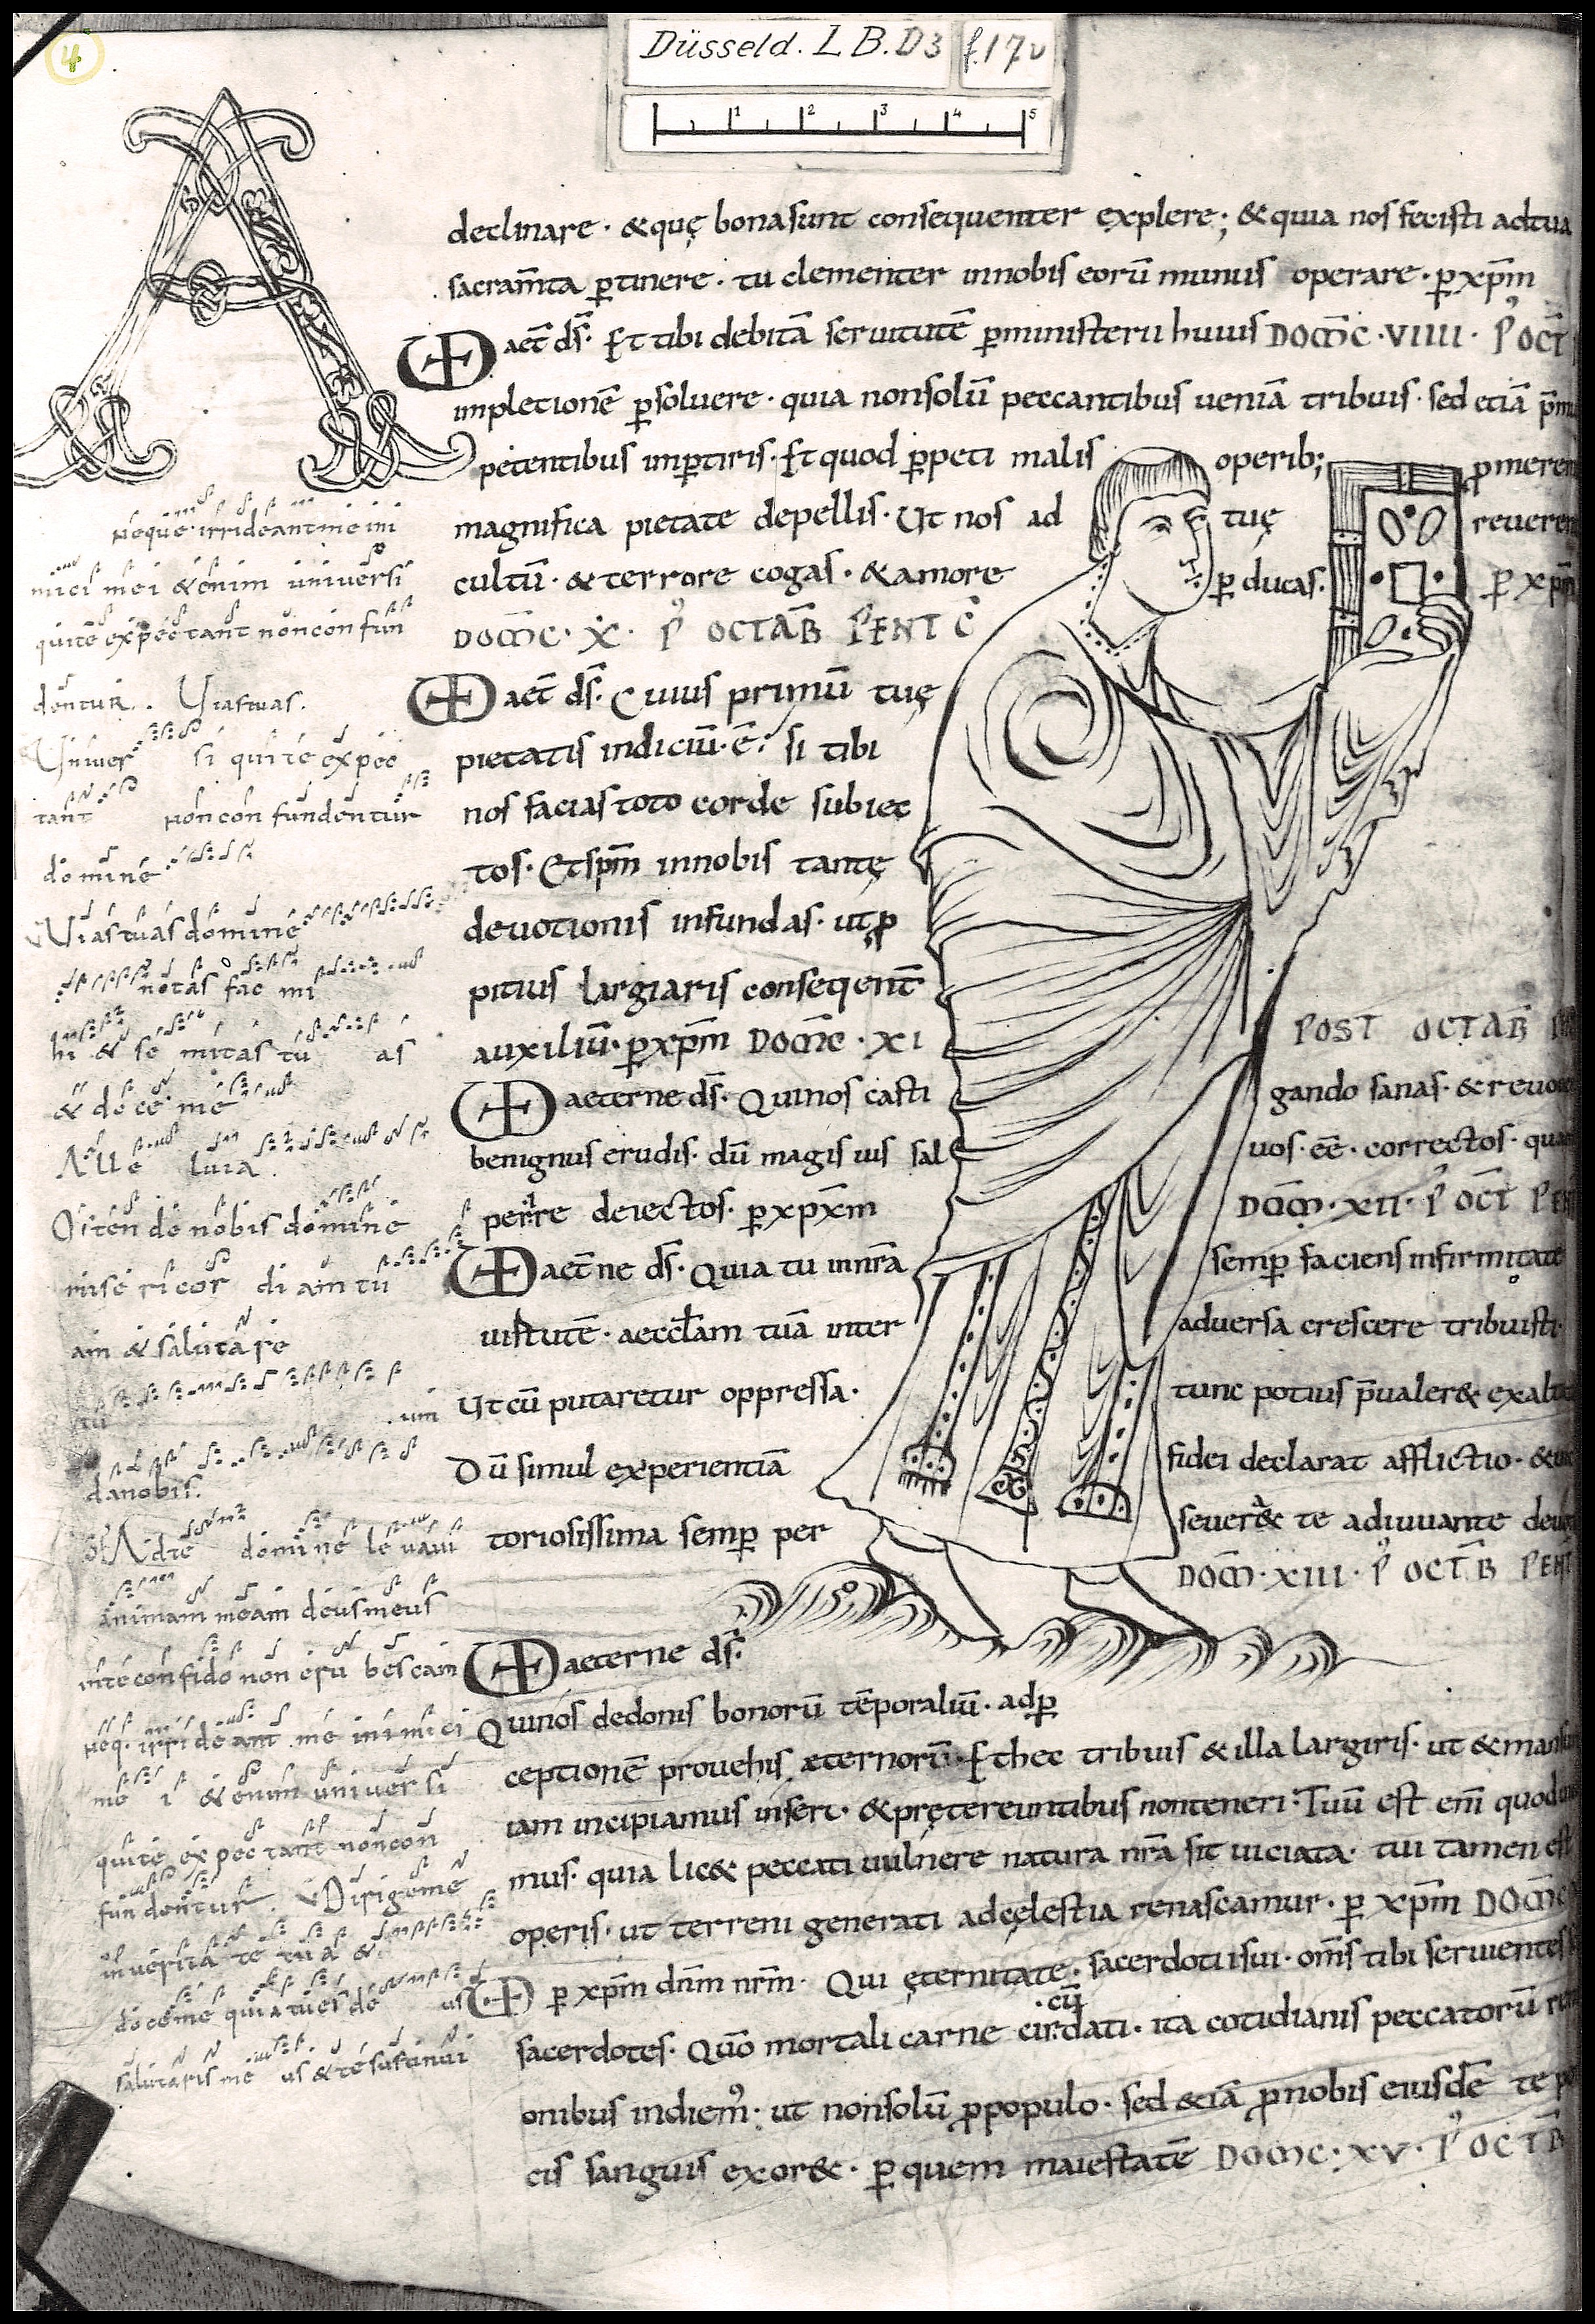 4
Düsseld. LB. D3 f. 17v
1 2 3 4 5
declinare · & quę bona sunt consequenter explere; & quia nos fecisti ad tua
sacram̄ta ꝑtinere · tu clementer in nobis eorū munus operare · ꝑ xp̄m
VD aet̄ ds̄. Et tibi debitā seruitutē ꝑ ministerii huius DOM̄C · VIIII · P᾿ OCT̄
impletionē ꝑsoluere · quia non solū peccantibus ueniā tribuis · sed etiā
petentibus inꝑtiris · Et quod ꝑpeti malis operib;
magnifica pietate depellis · Ut nos ad tuę
cultū · & terrore cogas · & amore ꝑducas. ꝑ xp̄m
DOM̄C · X · P᾿ OCTAB̄ PENTC̄
VD aet̄ ds̄. Cuius primū tuę
pietatis indiciū · ē · si tibi
nos facias toto corde subiec
tos · Et sp̄m in nobis tantę
deuotionis infundas · ut ꝓ
pitius largiaris conseqent̄
auxiliū · ꝑ xp̄m DOM̄C · XI POST OCTAB̄
VD aeterne ds̄. Qui nos casti gando sanas · & refouen
benignus erudis · dū magis uis sal uos · eē · correctos · quā
per᷎re deiectos · ꝑ xp̄m DOM̄ · XII · P᾿ OCT̄
VD aet̄ne ds̄. Quia tu in nr̄a semꝑ faciens infirmitate
uirtutē · aecclam tuā inter aduersa crescere tribuisti ·
Ut cū putaretur oppressa · tunc potius p̄ualer&
Dū simul experientiā fidei declarat afflictio ·
toriosissima semꝑ per seuer& te adiuuante
DOM̄ · XIII · P᾿ OCT̄B
VD aeterne ds̄.
Qui nos de donis bonorū tēporaliū · ad ꝑ
ceptionē prouehis æternorū · Et hec tribuis & illa largiris · ut &
iam incipiamus inseri · & pręter euntibus non teneri · Tuū est enī quod
mus · quia lic& peccati uulnere natura nr̄a sit uiciata · tui tamen est
operis · ut terreni generati ad cęlestia renascamur · ꝑ xp̄m DOM̄C
VD ꝑ xp̄m dn̄m nr̄m · Qui ęternitate sacerdotii sui · om̄s tibi seruientes
sacerdotes · Quō mortali carne cir cū dati · ita cotidianis peccatorū
onibus indiem᾿ · ut non solū ꝓ populo · sed &iā ꝓ nobis eiusdē te
cis sanguis exor& · ꝑ quem maiestatē DOM̄C · XV · P᾿ OCTB̄
A
Neque irrideant me ini
mici mei &enim universi
qui te expectant non confun
dentur. Vias tuas.
Univer si qui te expec
tant non confundentur
domine
Vias tuas domine
notas fac mi
hi & se mitas tu as
& doce me
Alle luia.
Ostende nobis domine
mise ricor di am tu
am & saluta re
tu um
da nobis.
of Ad te domine levavi
animam meam deus meus
in te confido non eru bescam
neq. irrideant me inimici
me i &enim univer si
qui te expectant non con
fun dentur. Dirige me
in verita te tua &
doce me quia tu es de us
salutaris me us & te sustinui